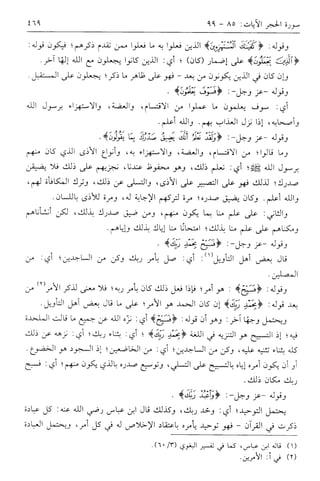 سورة الحجر الآيات: ٨٥ - ٩٩
٤٦٩
وقوله: ﴿كَفَيْنَاكَ الْمُسْتَهْزِءِينَ﴾ الذين فعلوا به ما فعلوا ممن تقدم ذكرهم؛ فيكون قوله:
﴿الَّذِينَ يَجْعَلُونَ﴾ على إضمار (كان) ؛ أي: الذين كانوا يجعلون مع الله إلهًا آخر.
وإن كان في الذين يكونون من بعد - فهو على ظاهر ما ذكر؛ يجعلون على المستقبل.
وقوله -عز وجل-: ﴿فَسَوْفَ يَعْلَمُونَ﴾ .
أي: سوف يعلمون ما عملوا من الاقتسام، والعضة، والاستهزاء برسول الله
وأصحابه، إذا نزل العذاب بهم. والله أعلم.
وقوله -عز وجل-: ﴿وَلَقَدْ نَعْلَمُ أَنَّكَ يَضِيقُ صَدْرُكَ بِمَا يَقُولُونَ﴾.
وما قالوا: من الاقتسام، والعضة، والاستهزاء به، وأنواع الأذى الذي كان منهم
برسول الله ﷺ؛ أي: نعلم ذلك، وهو محفوظ عندنا، نجزيهم على ذلك فلا يضيقن
صدرك؛ لذلك فهو على التصبير على الأذى، والتسلي عن ذلك، وترك المكافأة لهم،
والله أعلم. وكان يضيق صدره؛ مرة لتركهم الإجابة له، ومرة للأذى باللسان.
والثاني: على علم منا بما يكون منهم، ومن ضيق صدرك بذلك، لكن أنشأناهم
ومكناهم على علم منا بذلك؛ امتحانًا منا إياك بذلك وإياهم.
وقوله -عز وجل-: ﴿فَسَبِّحْ بِحَمْدِ رَبِّكَ﴾ .
قال بعض أهل التأويل(١): أي: صل بأمر ربك وكن من الساجدين؛ أي: من
المصلين.
وقوله: ﴿فَسَبِّحْ﴾ : هو أمر؛ فإذا فعل ذلك كان بأمر ربه؛ فلا معنى لذكر الأمر(٢) من
بعد قوله: ﴿بِحَمْدِ رَبِّكَ﴾ إن كان الحمد هو الأمر؛ على ما قال بعض أهل التأويل.
ويحتمل وجهًا آخر: وهو أن قوله: ﴿فَسَبِّحْ﴾ أي: نزه الله عن جميع ما قالت الملحدة
فيه؛ إذ التسبيح هو التنزيه في اللغة ﴿بِحَمْدِ رَبِّكَ﴾ ؛ أي: بثناء ربك؛ أي: نزهه عن ذلك
كله بثناء تثنيه عليه، وكن من الساجدين؛ أي: من الخاضعين؛ إذ السجود هو الخضوع.
أو أن يكون أمره إياه بالتسبيح على التسلي، وتوسيع صدره بالذي يكون منهم؛ أي: فسبح
ربك مكان ذلك.
وقوله -عز وجل-: ﴿وَاعْبُدْ رَبَّكَ﴾ .
يحتمل التوحيد؛ أي: وحد ربك، وكذلك قال ابن عباس رضي الله عنه: كل عبادة
ذكرت في القرآن - فهو توحيد يأمره باعتقاد الإخلاص له في كل أمر، ويحتمل العبادة
(١) قاله ابن عباس، كما في تفسير البغوي (٦٠/٣).
(٢) في أ: الأمرين.